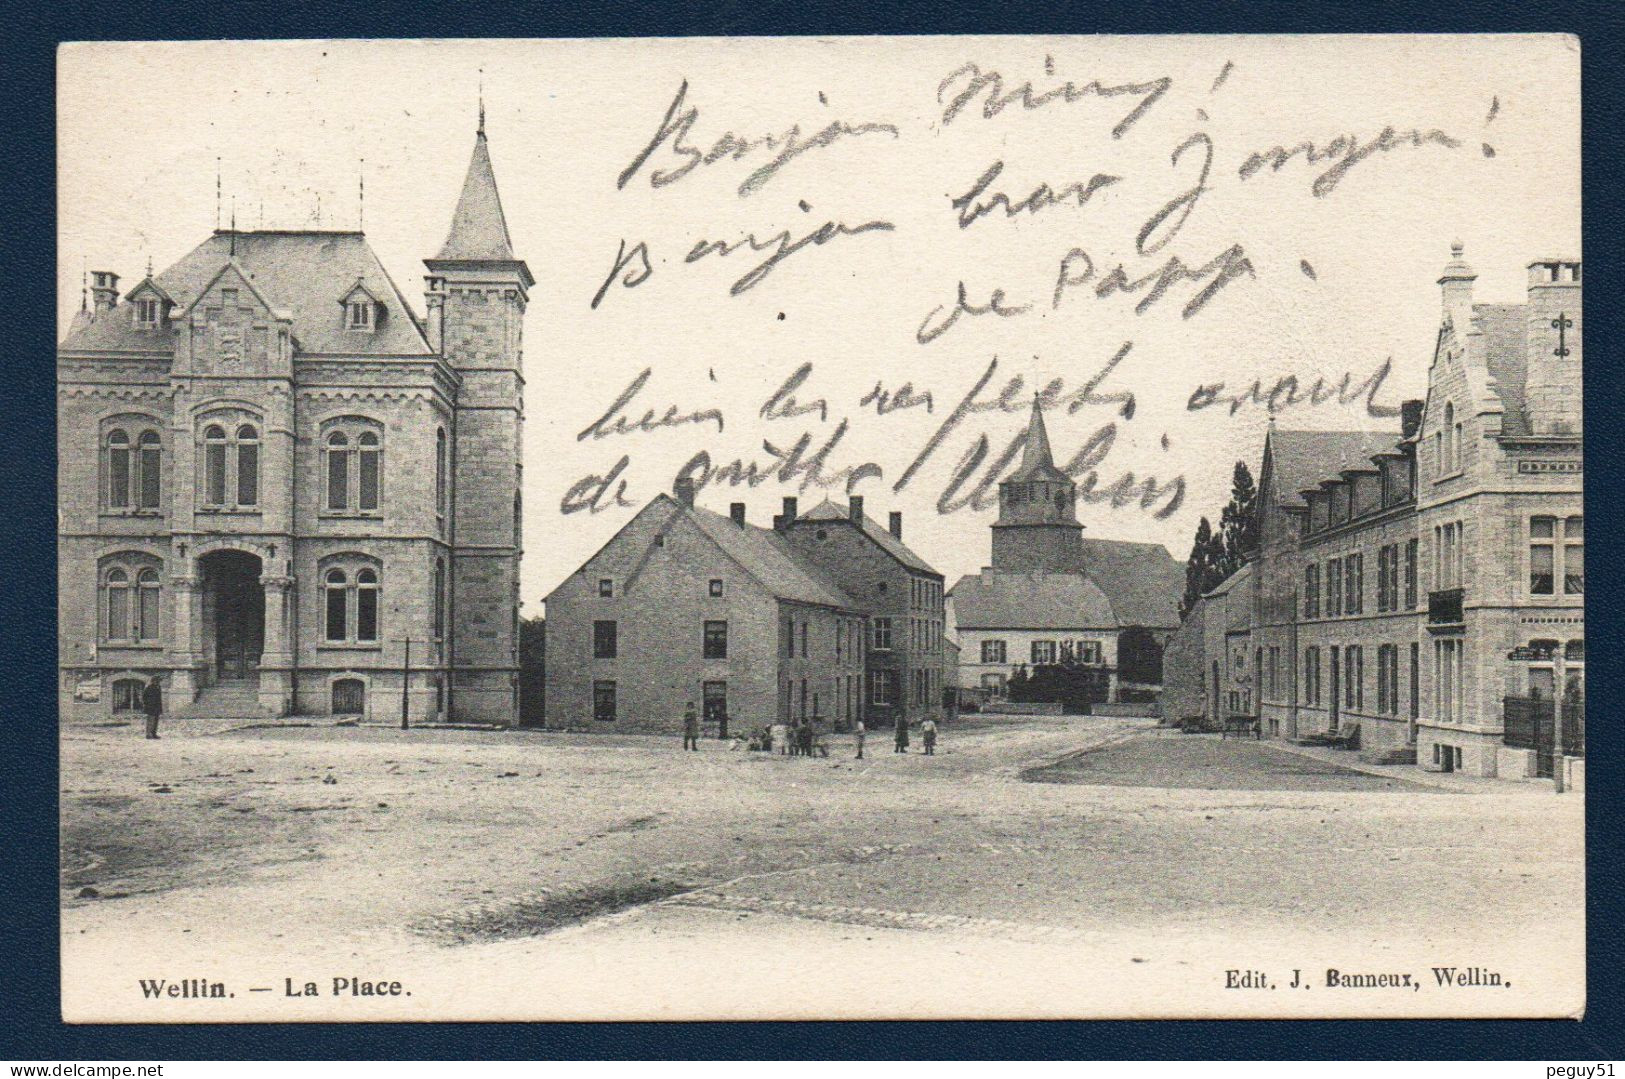 Bonjou Niny!
Bonjou brav Jongen!
de Papp.
bien les respects avant
de quitter Wellin
Wellin. — La Place.
Edit. J. Banneux, Wellin.
peguy51